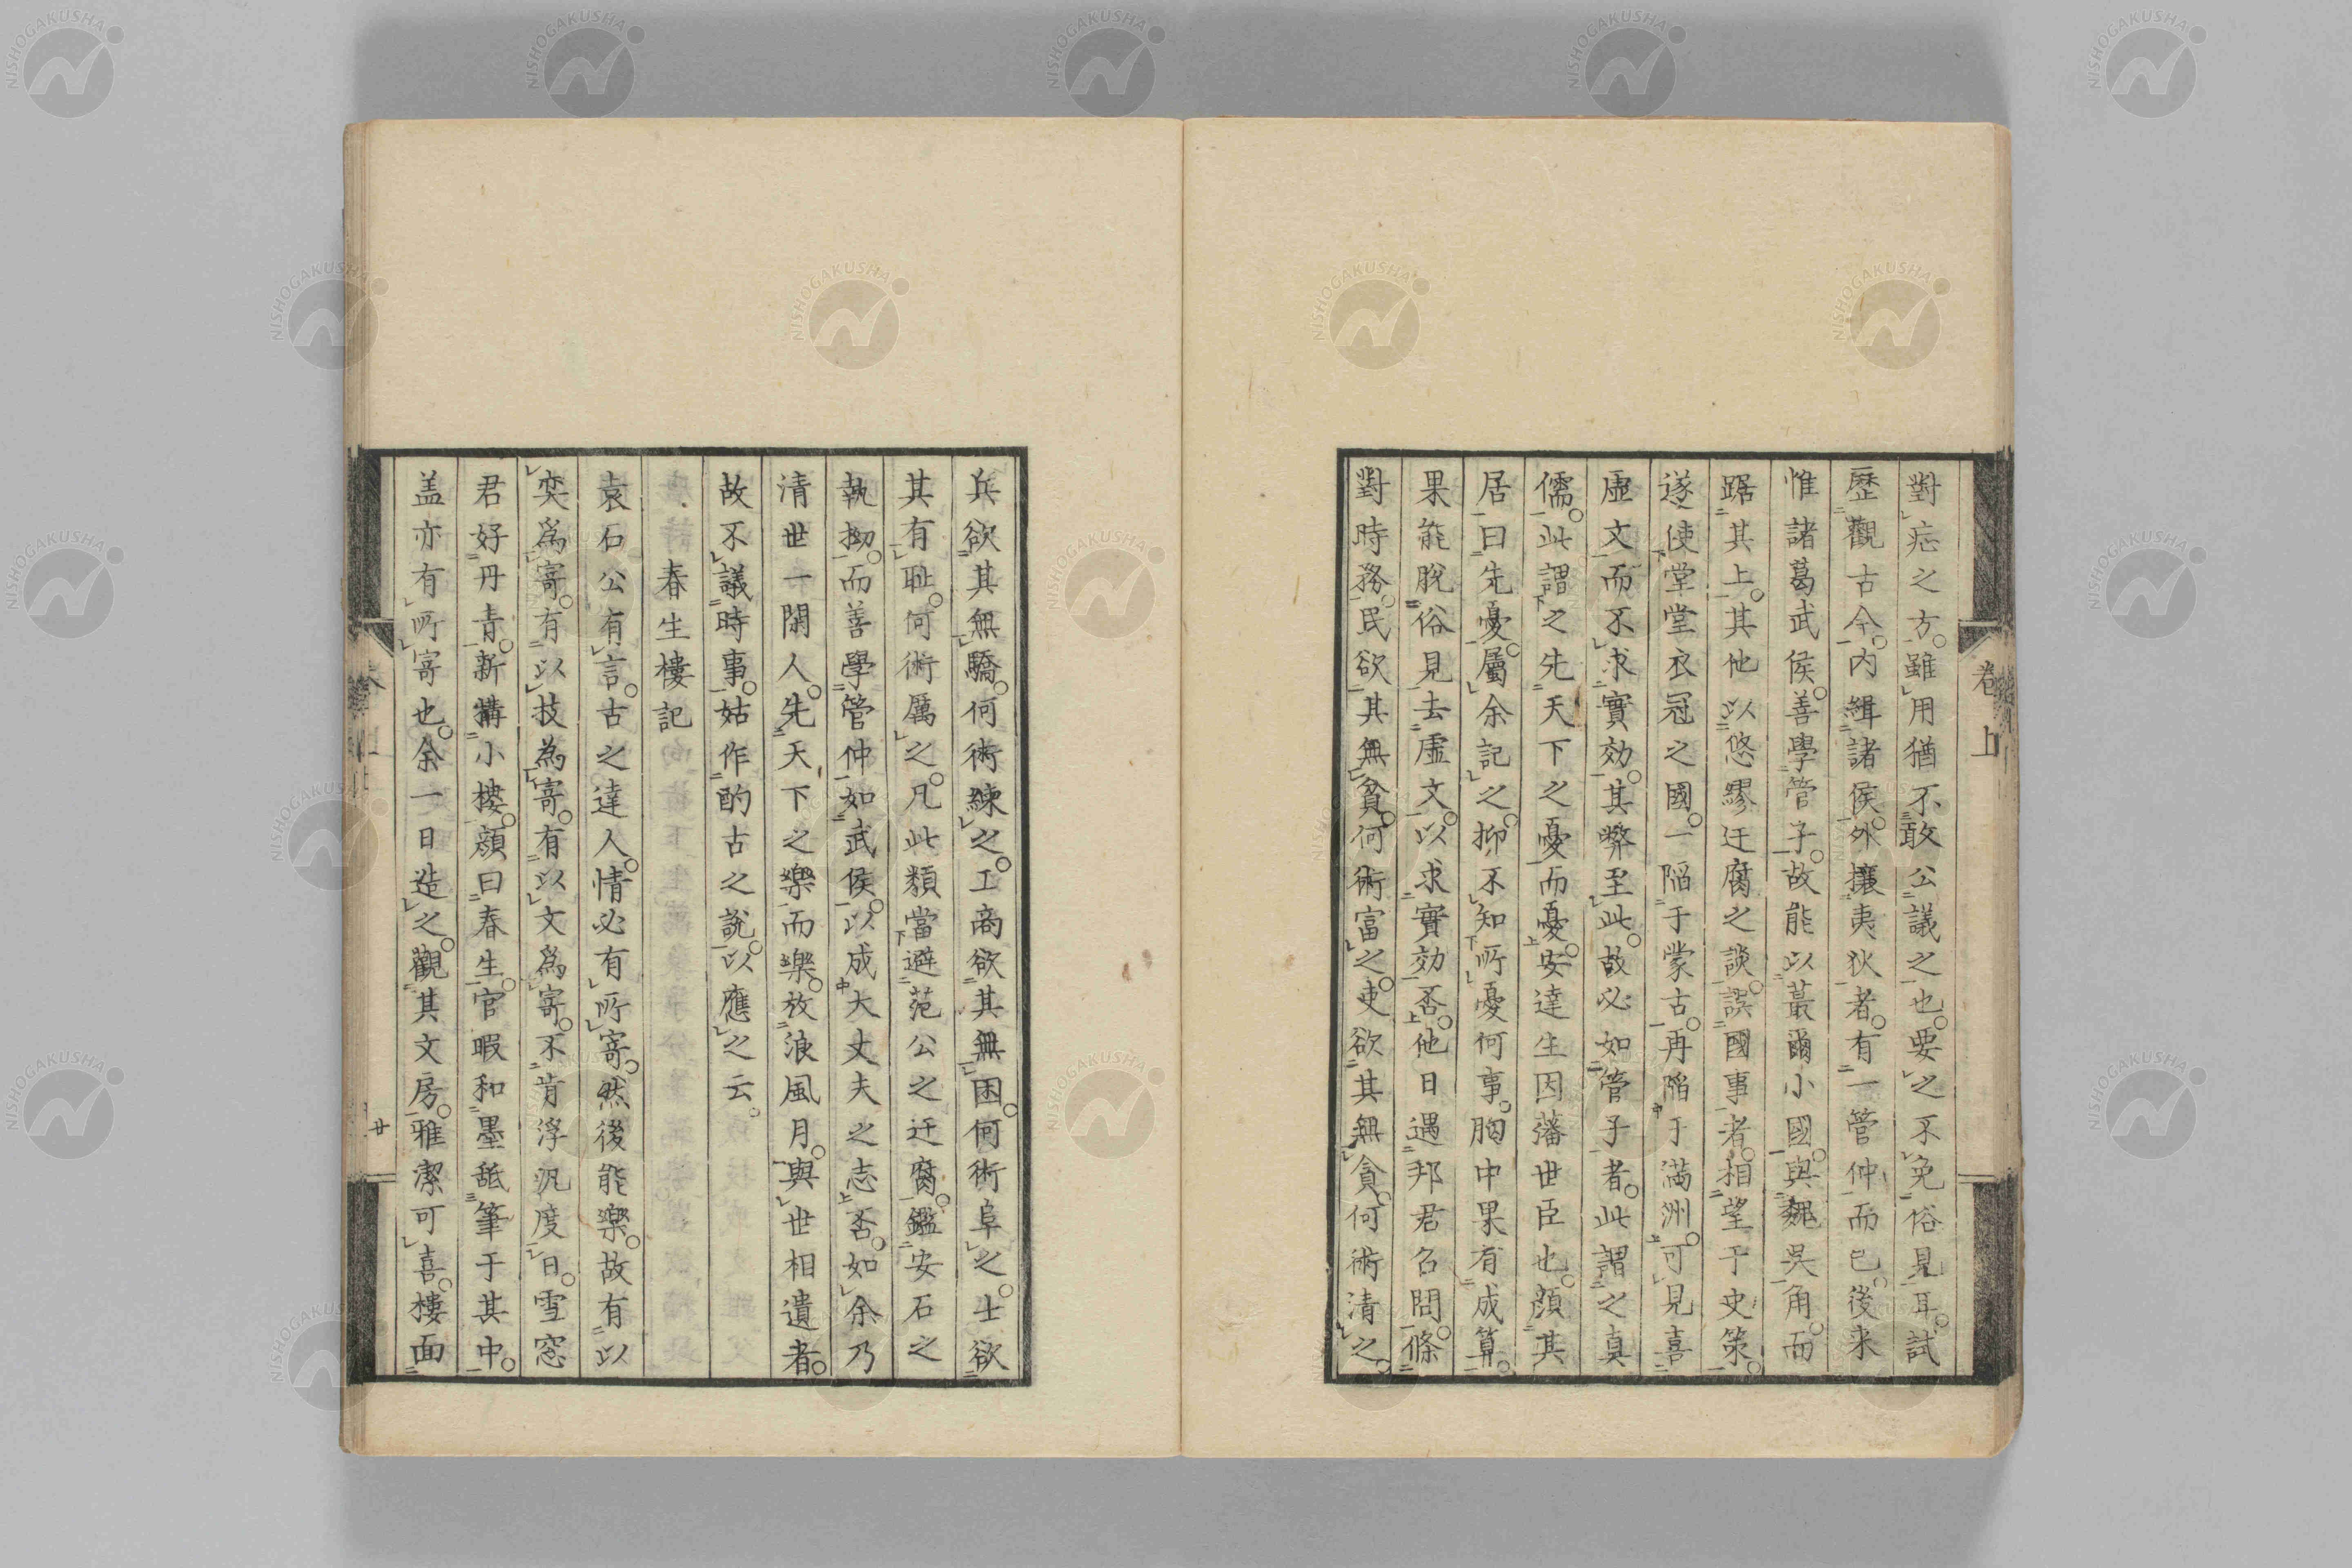 對症之方。雖用猶不敢公議之也。要之不免俗見耳。試
歷觀古今。內緝諸侯。外攘夷狄者。有一管仲而已。後来
惟諸葛武侯。善學管子。故能以蕞爾小國。與魏吳角。而
踞其上。其他以悠繆迂腐之談。誤國事者。相望于史策。
遂使堂堂衣冠之國。一陷于蒙古。再陷于満洲。可見喜
虛文而不求實効。其弊至此。故必如管子者。此謂之真
儒。此謂之先天下之憂而憂。安達生因藩世臣也。顔其
居曰先憂。屬余記之。抑不知所憂何事。胸中果有成算。
果能脫俗見去虛文。以求實効否。他日遇邦君召問。條
對時務。民欲其無貧。何術富之。吏欲其無貪。何術清之。
卷上
兵欲其無驕。何術練之。工商欲其無困。何術阜之。士欲
其有耻。何術厲之。凡此類當避范公之迂腐。鑑安石之
執拗。而善學管仲如武侯。以成大丈夫之志否。如余乃
清世一閑人。先天下之樂而樂。放浪風月。與世相遺者。
故不議時事。姑作酌古之說。以應之云。
春生樓記
袁石公有言。古之達人。情必有所寄。然後能樂。故有以
奕爲寄。有以技為寄。有以文爲寄。不肯浮汎度日。雪窓
君好丹青。新搆小樓。顔曰春生。官暇和墨舐筆于其中。
盖亦有所寄也。余一日造之。觀其文房。雅潔可喜。樓面
廿
NISHOGAKUSHA